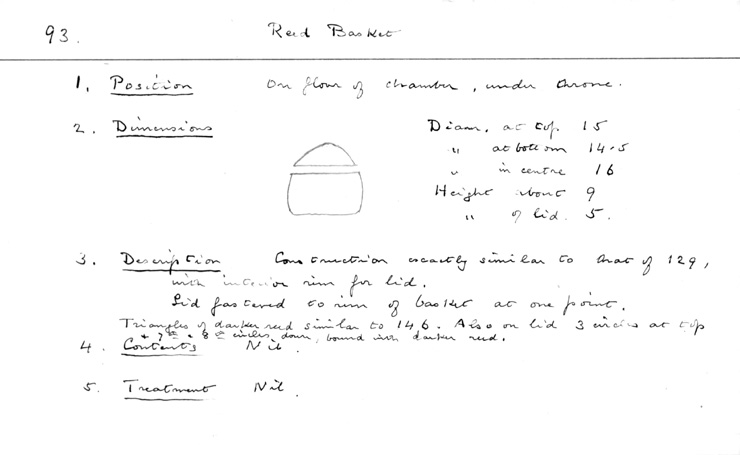 93. Reed Basket
1. Position On floor of chamber, under throne.
2. Dimensions Diam. at top 15
" at bottom 14.5
" in centre 16
Height about 9
" of lid. 5.
3. Description Construction exactly similar to that of 129,
with interior rim for lid.
Lid fastened to rim of basket at one point.
Triangles of darker reed similar to 146. Also on lid 3 circles at top
+ 7th + 8th circles down, bound with darker reed.
4. Contents Nil.
5. Treatment Nil.